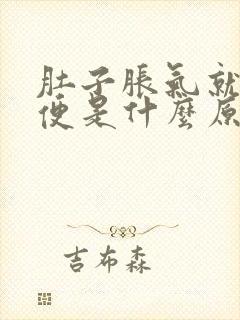 肚子脹氣就
便是什麼原
吉布森